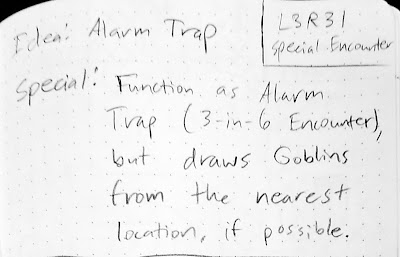 Idea: Alarm Trap
L3R31
Special Encounter
Special: Function as Alarm
Trap (3-in-6 Encounter),
but draws Goblins
from the nearest
location, if possible.